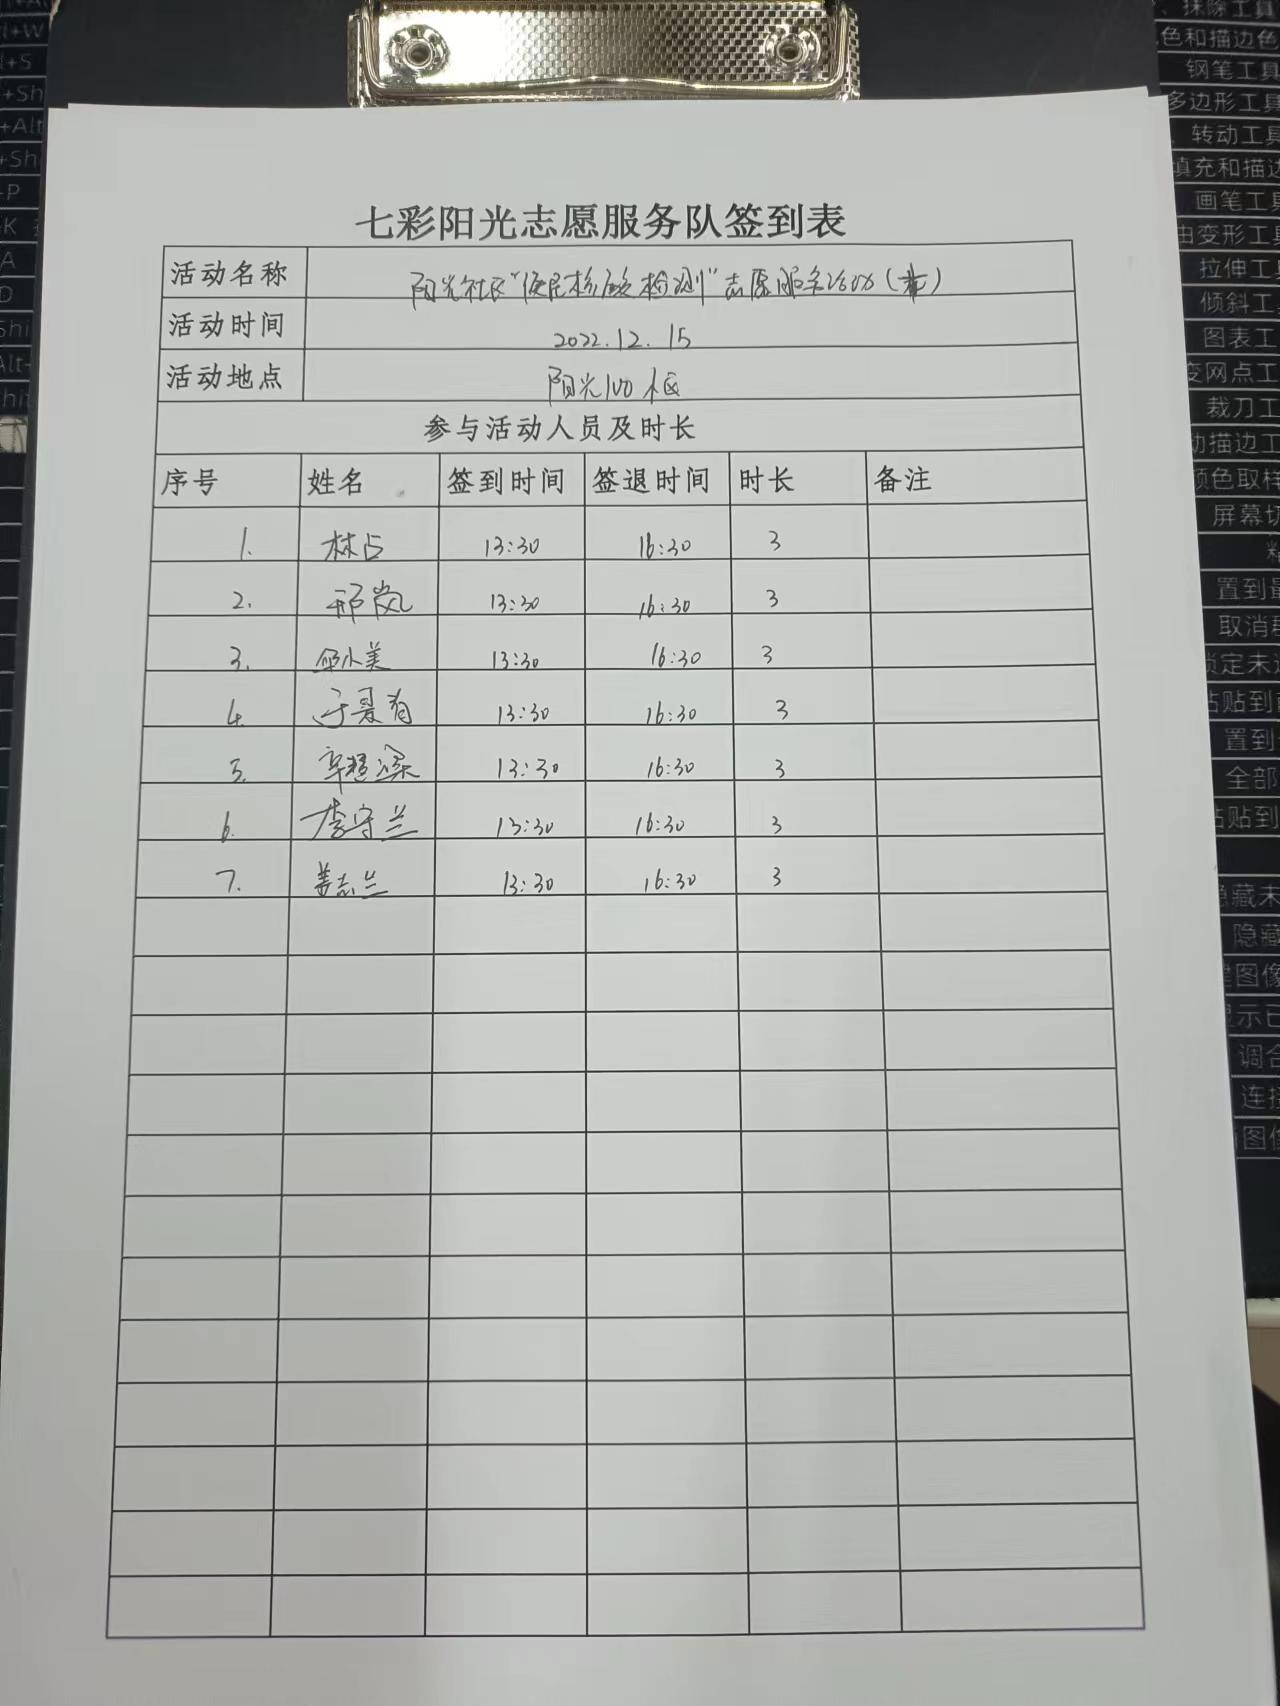 七彩阳光志愿服务队签到表
活动名称 阳光社区"便民核酸检测"志愿服务
活动时间 2022.12.15
活动地点 阳光100小区
参与活动人员及时长
序号 姓名 签到时间 签退时间 时长 备注
1. 林占 13:30 16:30 3
2. 邢岚 13:30 16:30 3
3. 小美 13:30 16:30 3
4. 于夏 13:30 16:30 3
5. 13:30 16:30 3
6. 李守兰 13:30 16:30 3
7. 姜志兰 13:30 16:30 3
抹除工具
色和描边色
钢笔工具
多边形工具
转动工具
填充和描边
画笔工具
由变形工具
拉伸工具
倾斜工具
图表工
变网点工
裁刀工
动描边工
颜色取样
屏幕切
置到最
取消
锁定未
粘贴到前
置到
全部
粘贴到
隐藏未
隐藏
建图像
显示已
调合
连接
图像